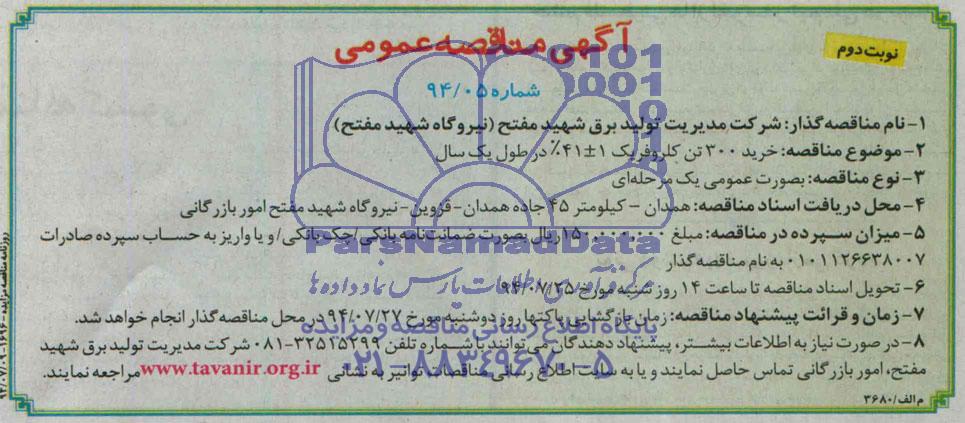 نوبت دوم
آگهی مناقصه عمومی
شماره ۹۴/۰۵
۱- نام مناقصه گذار: شرکت مدیریت تولید برق شهید مفتح (نیروگاه شهید مفتح)
۲- موضوع مناقصه: خرید ۳۰۰ تن کلروفریک ۱±۴۱٪ در طول یک سال
۳- نوع مناقصه: بصورت عمومی یک مرحله‌ای
۴- محل دریافت اسناد مناقصه: همدان - کیلومتر ۴۵ جاده همدان - قزوین - نیروگاه شهید مفتح امور بازرگانی
۵- میزان سپرده در مناقصه: مبلغ ۱۵۰,۰۰۰,۰۰۰ ریال بصورت ضمانت نامه بانکی/چک بانکی/و یا واریز به حساب سپرده صادرات
۰۱۰۱۱۲۶۶۳۸۰۰۷ به نام مناقصه گذار
۶- تحویل اسناد مناقصه تا ساعت ۱۴ روز شنبه مورخ ۹۴/۰۷/۲۵
۷- زمان و قرائت پیشنهاد مناقصه: زمان بازگشایی پاکتها روز دوشنبه مورخ ۹۴/۰۷/۲۷ در محل مناقصه گذار انجام خواهد شد.
۸- در صورت نیاز به اطلاعات بیشتر، پیشنهاد دهندگان می‌توانند با شماره تلفن ۳۲۵۱۵۲۹۹-۰۸۱ شرکت مدیریت تولید برق شهید
مفتح، امور بازرگانی تماس حاصل نمایند و یا به سایت اطلاع رسانی مناقصات توانیر به نشانی www.tavanir.org.ir مراجعه نمایند.
م الف/۳۶۸۰
روزنامه مناقصه مزایده - ۱۶۹۶ - ۹۴/۰۷/۰۹
ParsNamadData
مرکز فرآوری اطلاعات پارس نماد داده ها
پایگاه اطلاع رسانی مناقصه و مزایده
۰۲۱-۸۸۳۴۹۶۷۰-۵